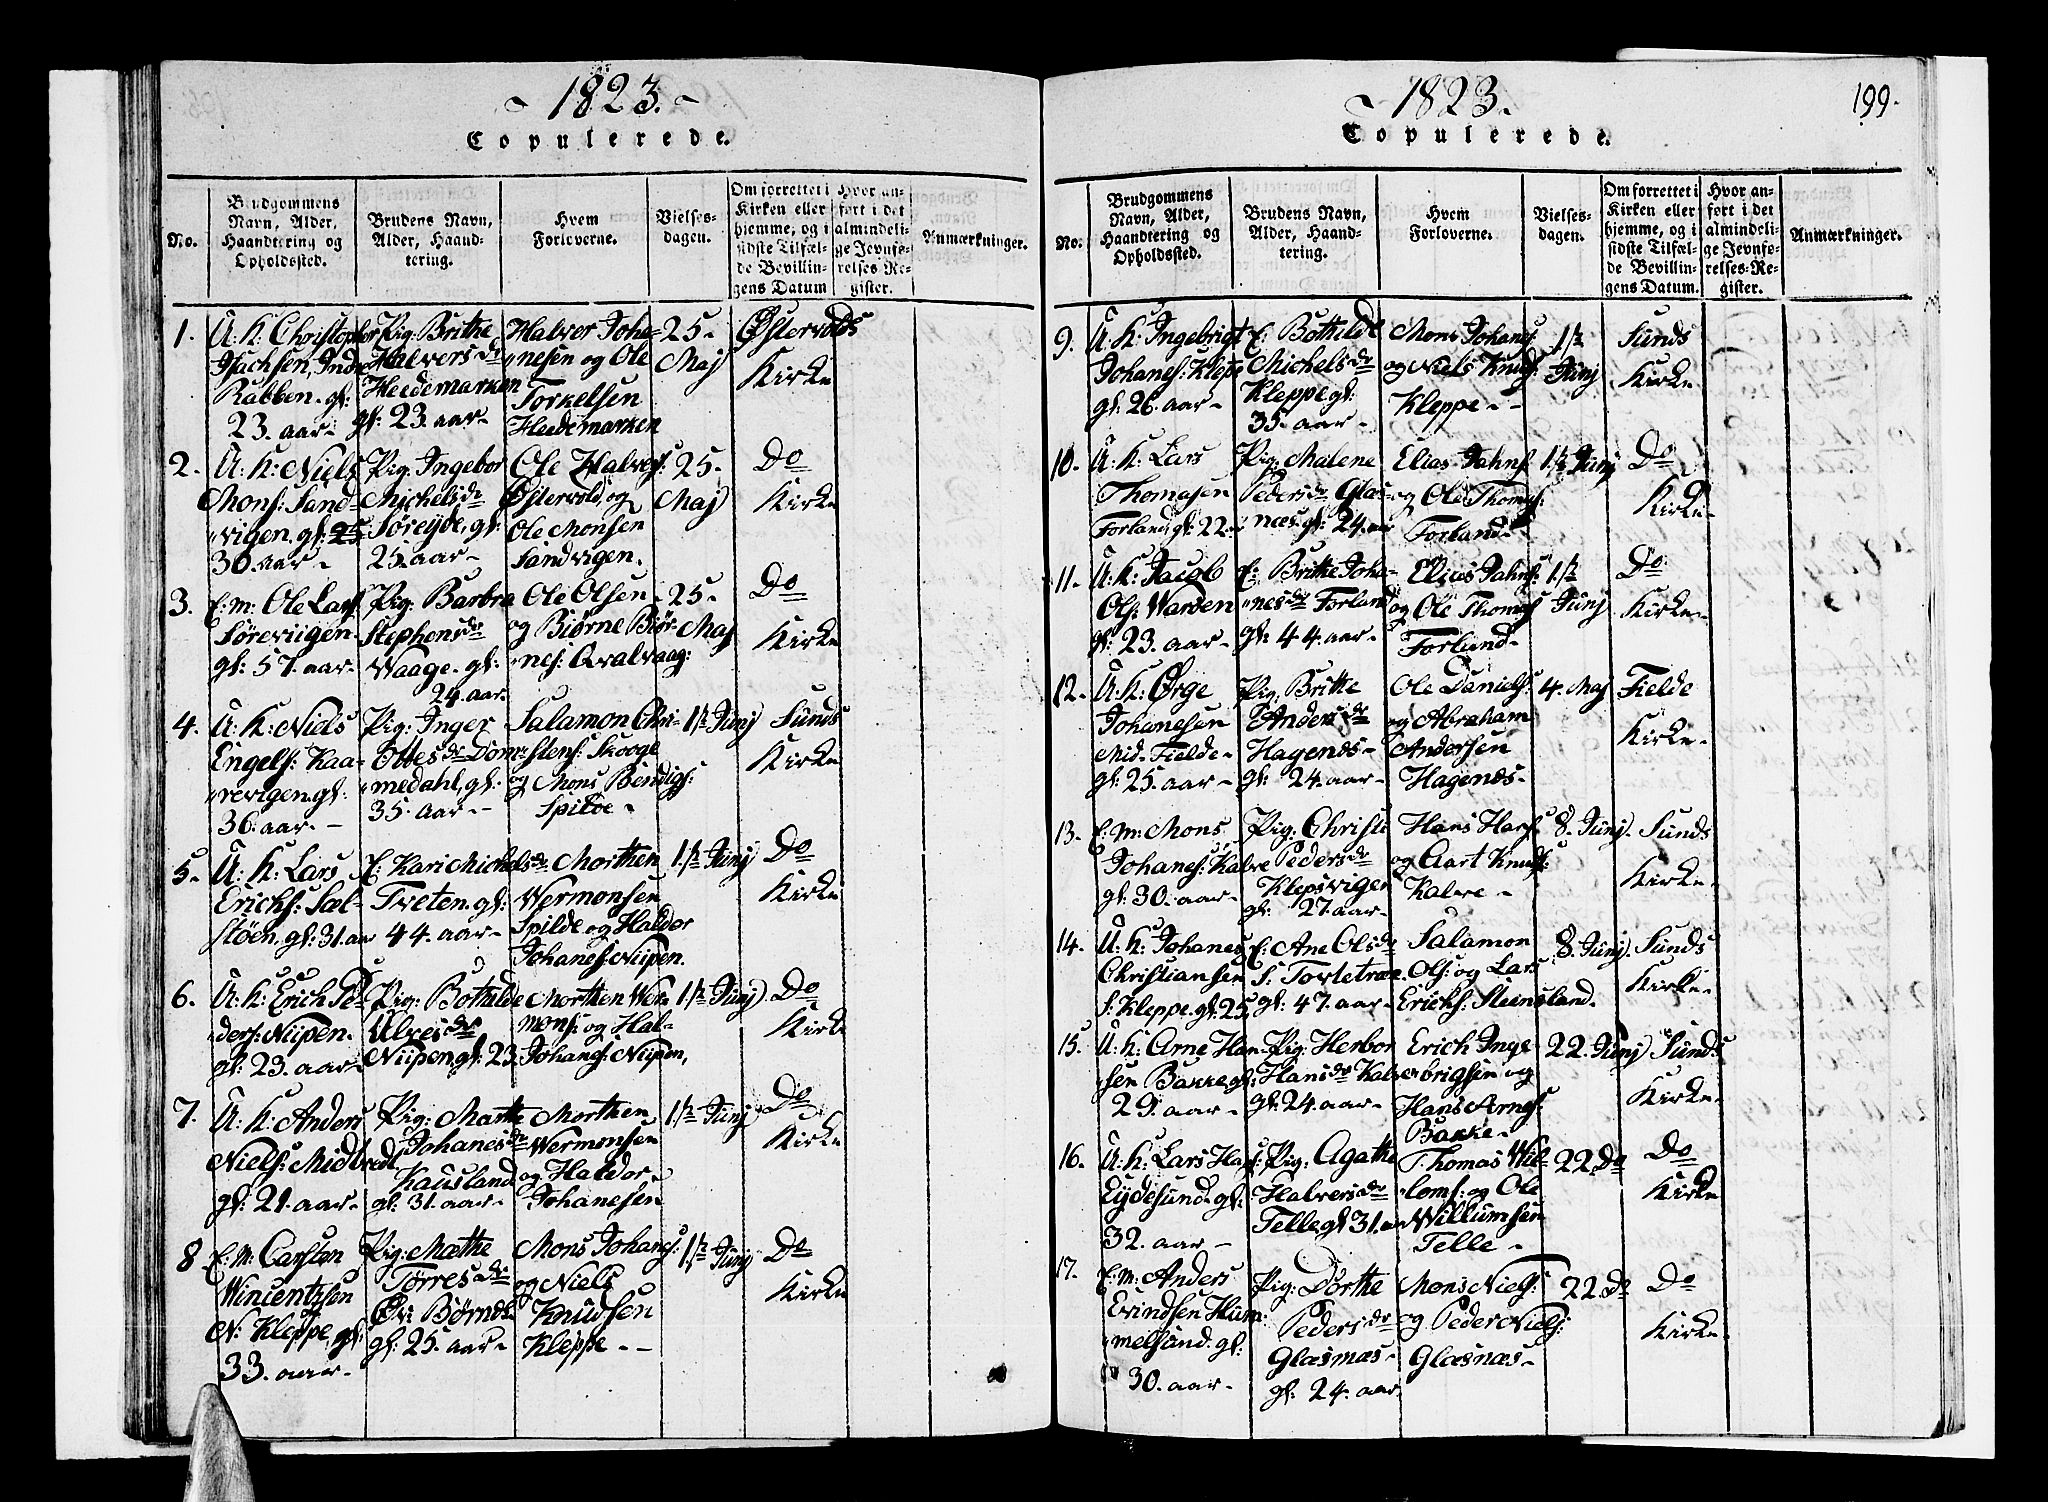 1823.
Copulerede.
No.
Brudgommens
Navn, Alder,
Haandtering og
Opholdssted.
Brudens Navn,
Alder, Haand-
tering.
Hvem
Forloverne.
Vielses-
dagen.
Om forrettet i
Kirken eller
hjemme, og i
sidste Tilfæl-
de Bevillin-
gens Datum
Hvor an-
ført i det
almindeli-
ge Jevnfø-
relses-Re-
gister.
Anmærkninger.
1.
U: K: Christopher
Isachsen, Indre
Rabben. gl:
23. aar-
Pig: Brithe
Halversdr
Heedemarken
gl: 23. aar-
Halver Joha-
"nesen og Ole
Torkelsen
Heedemarken
25-
Maj
Østervolds
Kirke
2.
U: K: Niels
Mons: Sand-
"vigen. gl: 25
30. aar-
Pig: Ingebor
Michelsdr
Søreyde, gl:
25. aar-
Ole Halves:
Østervold, og
Ole Monsen
Sandvigen.
25.
Maj
Do
Kirke
3.
E: m: Ole Lars:
Sørevigen
gl: 57. aar-
Pig: Barbra
Stephensdr
Waage. gl:
24. aar-
Ole Olsen
og Biørne Biør-
"nes: Qvalvaag:
25-
Maj
Do
Kirke
4.
U: K: Niels
Engels: Kaa-
"revigen. gl:
36. aar. -
Pig: Inger
Ottesdr Dom-
"medahl, gl:
35. aar-
Salamon Chri-
"stens: Skooge
og Mons Bendigs:
Spilde-
1ste Junj
Sunds
Kirke
5.
U: K: Lars
Ericks: Sæl-
støen. gl: 31. aar
E: Kari Michelsdr
Tveten. gl:
44. aar-
Morthen
Wermonsen
Spilde og Haldor
Johanes: Nupen.
1ste Junj
Do
Kirke
6.
U: K: Erich Pe-
"ders: Nupen.
gl: 23. aar-
Pig: Bothilde
Ulvesdr
Nupen. gl: 23.
Morthen Wer-
mons: og Hal-
Johans: Nupen,
1ste Junj
Do
Kirke
7.
U: K: Anders
Niels: Midtvedt
gl: 21. aar-
Pig: Marthe
Johanesdr
Kausland
gl: 31. aar-
Morthen
Wermonsen
og Haldor
Johanesen
1ste Junj
Do
Kirke
8.
E: M: Carsten
Wincentzsen
N: Kleppe, gl:
33. aar-
Pig: Mæthe
Tørresdr
Børnæs
gl: 25. aar-
Mons Johans:
og Niels
Knudsen
Kleppe - -
1ste Junj
Do
Kirke
1823.
199.
Copulerede.
No.
Brudgommens
Navn, Alder,
Haandtering og
Opholdssted.
Brudens Navn,
Alder, Haand-
tering.
Hvem
Forloverne.
Vielses-
dagen.
Om forrettet i
Kirken eller
hjemme, og i
sidste Tilfæl-
de Bevillin-
gens Datum.
Hvor an-
ført i det
almindeli-
ge Jevnfø-
relses-Re-
gister.
Anmærkninger.
9.
U: K: Ingebrigt
Johanes: Kleppe
gl: 26. aar-
E: Bothilde
Michelsdr
Kleppe. gl:
35. aar-
Mons Johans:
og Niels Knuds:
Kleppe- -
1ste
Junj
Sunds
Kirke
10.
U: K: Lars
Thomasen
Forland, gl: 22-
Pig: Malene
Pedersdr Glæs-
næs. gl: 24. aar
Elias Jahns:
og Ole Thomas:
Forland-
1ste Junj
Do
Kirke-
11.
U: K: Jacob
Ols: Warden
gl: 23. aar-
E: Brithe Joha-
"nesdr Forland
gl: 44. aar-
Elias Jahns:
og Ole Thomas
Forland-
1ste
Junj
Do
Kirke-
12.
U: K: Ørge
Johanesen
Mid-Fielde-
gl: 25. aar-
Pig: Britte
Andersdr
Hagenæs-
gl: 24. aar-
Ole Daniels:
og Abraham
Andersen
Hagenæs-
4. Maj
Fielde
Kirke-
13.
E: m: Mons
Johanes: Kalve
gl: 30. aar-
Pig: Christi
Pedersdr
Klepsvigen
gl: 27. aar-
Hans Hans:
og Aart Knuds:
Kalve-
8. Junj.
Sunds
Kirke-
14.
U: K: Johanes
Christiansen
S: Kleppe. gl: 25
E: Ane Olsdr
S: Torletræe
gl: 47. aar-
Salamon
Ols: og Lars
Ericks: Steinsland.
8. Junj.
Sunds
Kirke-
15.
U: K: Arne Han-
"sen Bakke. gl:
29. aar-
Pig: Herbor
Hansdr Kalve
gl: 24. aar-
Erich Inge
brigsen og
Hans Arnes:
Bakke-
22. Junj
Sunds
Kirke-
16.
U: K: Lars Hans:
Eydesund. gl:
32. aar-
Pig: Agathe
Halversdr
Telle. gl 31. aar
Thomas Wil-
"loms: og Ole
Willumsen
Telle-
22. Do
Do
Kirke
17.
E: m: Anders
Evindsen Hum-
"melsund. gl:
30. aar-
Pig: Dorthe
Pedersdr
Glæsnæs-
gl: 24. aar
Mons Niels:
og Peder Niels:
Glæsnæs-
22. Do
Do
Kirke-